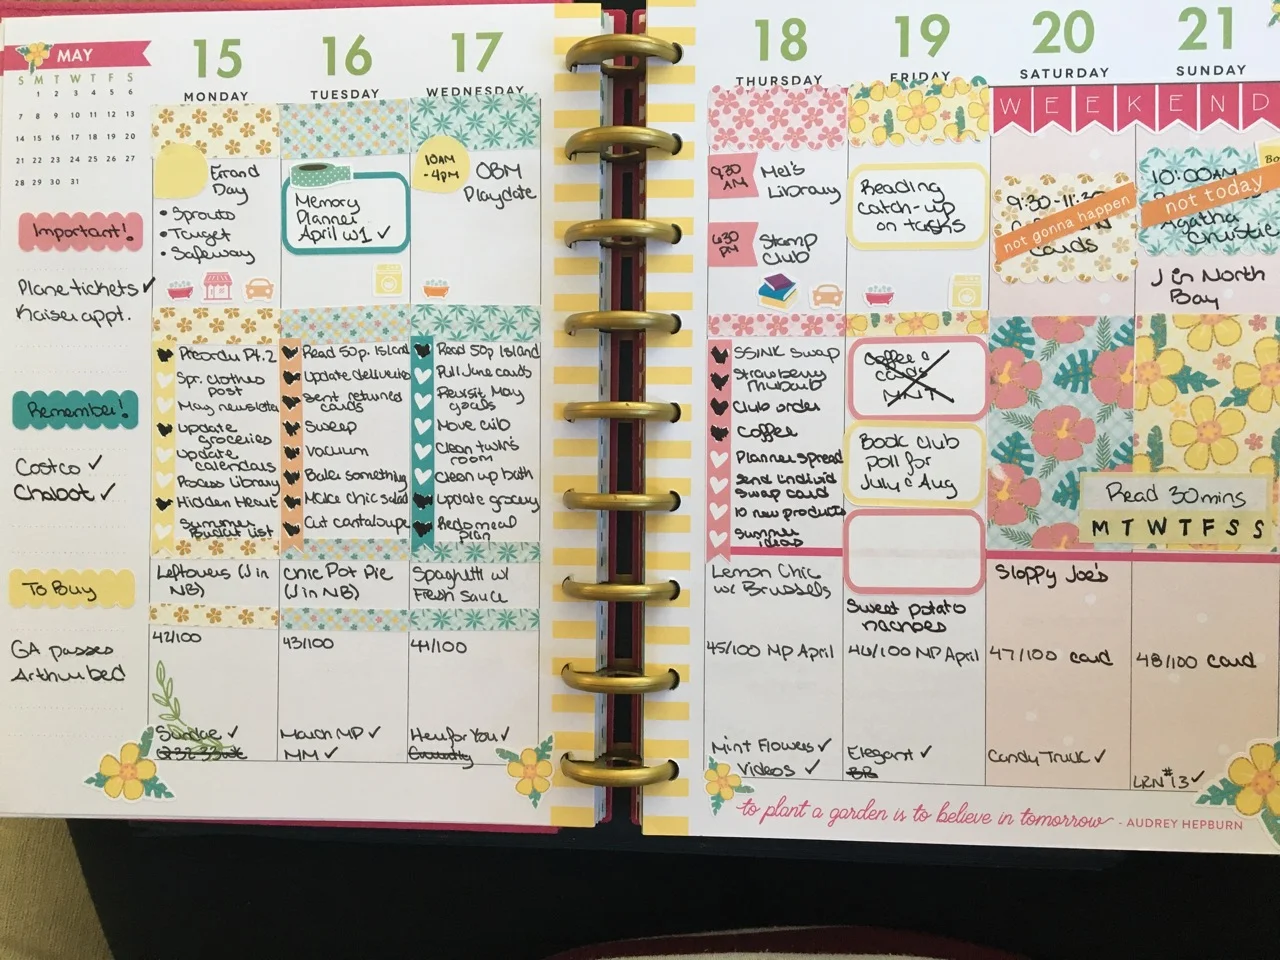 MAY
S M T W T F S
1 2 3 4 5 6
7 8 9 10 11 12 13
14 15 16 17 18 19 20
21 22 23 24 25 26 27
28 29 30 31
Important!
Plane tickets ✓
Kaiser appt.
Remember!
Costco ✓
Chabot ✓
To Buy
GA passes
Arthur bed
15
MONDAY
Errand
Day
• Sprouts
• Target
• Safeway
Preordu Pt. 2
Spr. clothes
post
May newsletter
update
groceries
update
calendars
Process Library
Hidden Heart
Summer
Bucket list
Leftovers (J in
NB)
42/100
Sundae ✓
16
TUESDAY
Memory
Planner
April W1 ✓
Read 50p. Island
update deliveries
Sent returned
cards
Sweep
Vacuum
Bake something
Make chic salad
Cut cantaloupe
Chic Pot Pie
(J in NB)
43/100
March MP ✓
MM ✓
17
WEDNESDAY
10AM
-4PM
OBM
Playdate
Read 50p Island
Pull June cards
Revisit May
goals
Move crib
Clean twin's
room
Clean up bath
update grocery
Redo meal
plan
Spaghetti w/
Fresh Sauce
44/100
Here for You ✓
18
THURSDAY
9:30
AM
Mel's
Library
6:30
PM
Stamp
Club
SSINK Swap
Strawberry
Rhubarb
Club order
Coffee
Planner spread
Send individ
swap card
10 new products
Summer
ideas
Lemon Chic
w/ Brussels
45/100 MP April
Mint Flowers ✓
Videos ✓
19
FRIDAY
Reading
catch-up
on tasks
Coffee &
cards
MNT
Book Club
poll for
July & Aug
Sweet potato
nachoes
46/100 MP April
Elegant ✓
BB
20
SATURDAY
WEEKEND
9:30-11:30
not gonna happen
cards
Sloppy Joe's
47/100 card
Candy Truck ✓
21
SUNDAY
10:00AM
not today
Agatha
Christie
J in North
Bay
Read 30 mins
M T W T F S S
48/100 card
LRN #13 ✓
to plant a garden is to believe in tomorrow - AUDREY HEPBURN